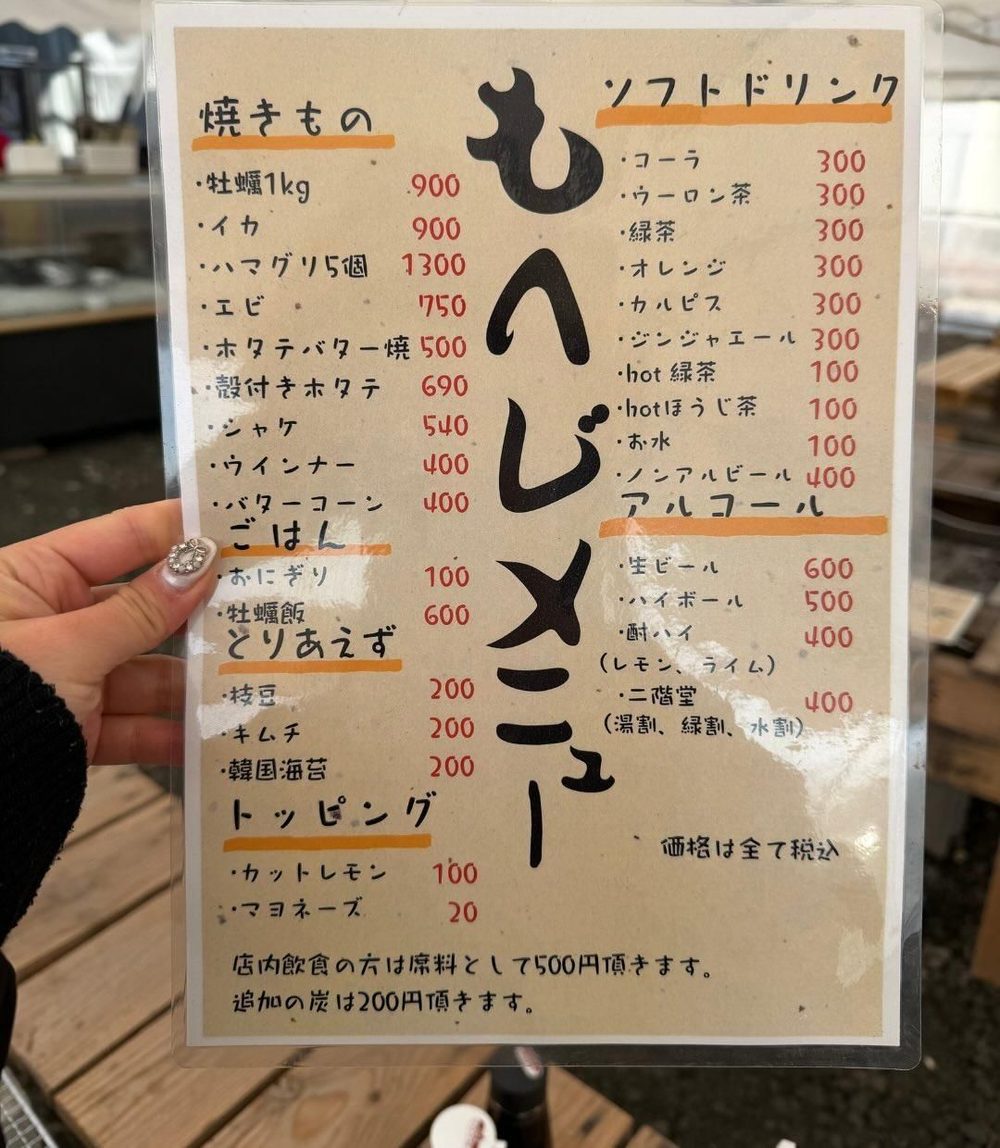 もへじメニュー
焼きもの
・牡蠣1kg 900
・イカ 900
・ハマグリ5個 1300
・エビ 750
・ホタテバター焼 500
・殻付きホタテ 690
・シャケ 540
・ウインナー 400
・バターコーン 400
ごはん
・おにぎり 100
・牡蠣飯 600
とりあえず
・枝豆 200
・キムチ 200
・韓国海苔 200
トッピング
・カットレモン 100
・マヨネーズ 20
ソフトドリンク
・コーラ 300
・ウーロン茶 300
・緑茶 300
・オレンジ 300
・カルピス 300
・ジンジャエール 300
・hot 緑茶 100
・hotほうじ茶 100
・お水 100
・ノンアルビール 400
アルコール
・生ビール 600
・ハイボール 500
・酎ハイ 400
(レモン、ライム)
・二階堂 400
(湯割、緑割、水割)
価格は全て税込
店内飲食の方は席料として500円頂きます。
追加の炭は200円頂きます。